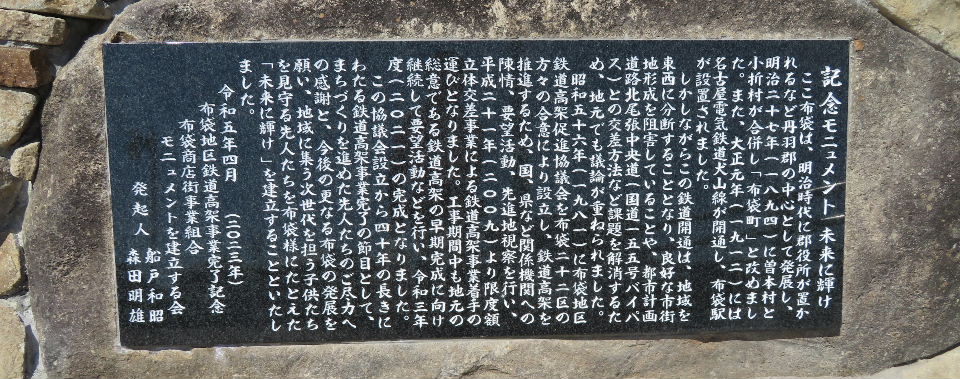 記念モニュメント 未来に輝け
ここ布袋は、明治時代に郡役所が置か
れるなど丹羽郡の中心として発展し、
明治二十七年(一八九四)に曽本村と
小折村が合併し「布袋町」と改めまし
た。また、大正元年(一九一二)には
名古屋電気鉄道犬山線が開通し、布袋駅
が設置されました。
しかしながらこの鉄道開通は、地域を
東西に分断することとなり、良好な市街
地形成を阻害していることや、都市計画
道路北尾張中央道(国道一五五号バイパ
ス)との交差方法など課題を解消するた
め、地元でも議論が重ねられました。
昭和五十六年(一九八一)に布袋地区
鉄道高架促進協議会を布袋二十二区の
方々の合意により設立し、鉄道高架を
推進するため、国、県など関係機関への
陳情、要望活動、先進地視察を行い、
平成二十一年(二〇〇九)より限度額
立体交差事業による鉄道高架事業着手の
運びとなりました。工事期間中も地元の
総意である鉄道高架の早期完成に向け
継続して要望活動などを行い、令和三年
度(二〇二一)の完成となりました。
この協議会設立から四十年の長きに
わたる鉄道高架事業完了の節目として、
まちづくりを進めた先人たちのご尽力へ
の感謝と、今後の更なる布袋の発展を
願い、地域に集う次世代を担う子供たち
を見守る先人たちを布袋様にたとえた
「未来に輝け」を建立することといたし
ました。
令和五年四月 (二〇二三年)
布袋地区鉄道高架事業完了記念
布袋商店街街路事業組合
モニュメントを建立する会
発起人 船戸和昭
森田明雄